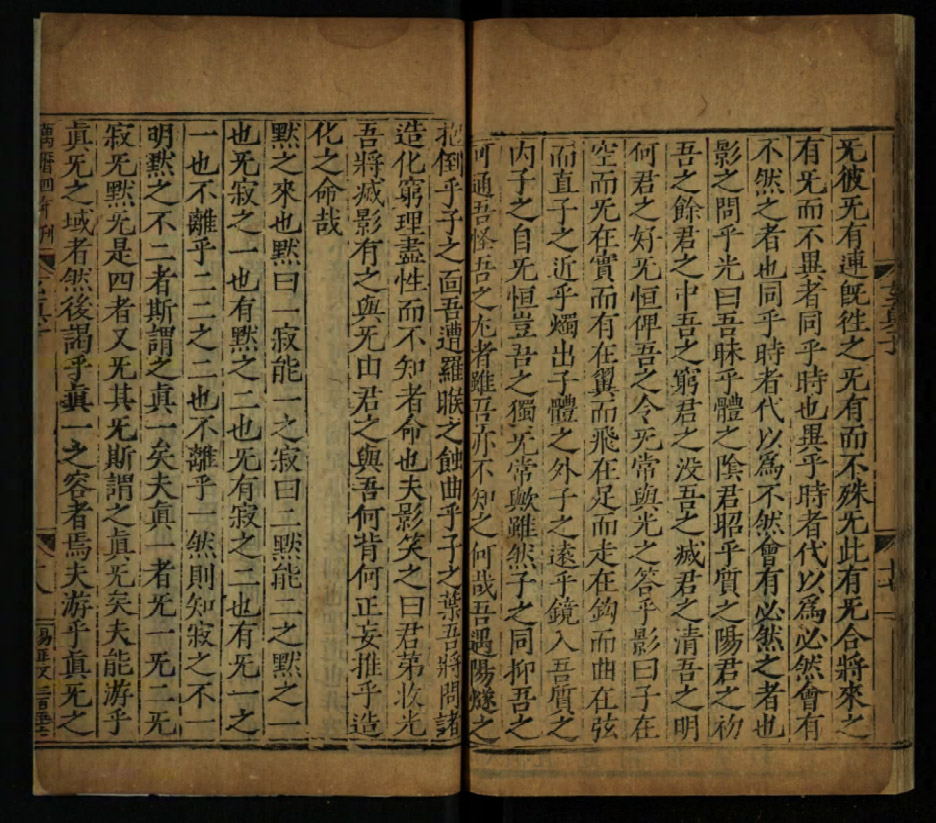 玄真子
十七
无彼无有連既徃之无有而不殊无此有无合將來之
有无而不異者同乎時也異乎時者代以為必然會有
不然之者也同乎時者代以為不然會有必然之者也
影之問乎光曰吾昧乎體之陰君昭乎質之陽君之初
吾之餘君之中吾之窮君之没吾之滅君之清吾之明
何君之好无恒俾吾之令无常與光之答乎影曰子在
空而无在實而有在翼而飛在足而走在鈎而曲在弦
而直子之近乎燭出子體之外子之遠乎鏡入吾質之
内子之自无恒豈吾之獨无常歟雖然子之同抑吾之
可通吾怪吾之尤者雖吾亦不知之何哉吾遇陽燧之
抱倒乎子之面吾遭羅睺之蝕曲乎子之葉吾將問諸
造化窮理盡性而不知者命也夫影笑之曰君弟收光
吾將滅影有之與无由君之與吾何背何正妄推乎造
化之命哉
黙之來也黙曰一寂能一之寂曰二黙能二之黙之一
也无寂之一也有黙之二也无有寂之二也有无一之
一也不離乎二二之二也不離乎一然則知寂之不一
明黙之不二者斯謂之真一矣夫真一者无一无二无
寂无黙无是四者又无其无斯謂之真无矣夫能游乎
真无之域者然後謁乎真一之容者焉夫游乎真无之
萬曆四年刊
玄真子
十八
易